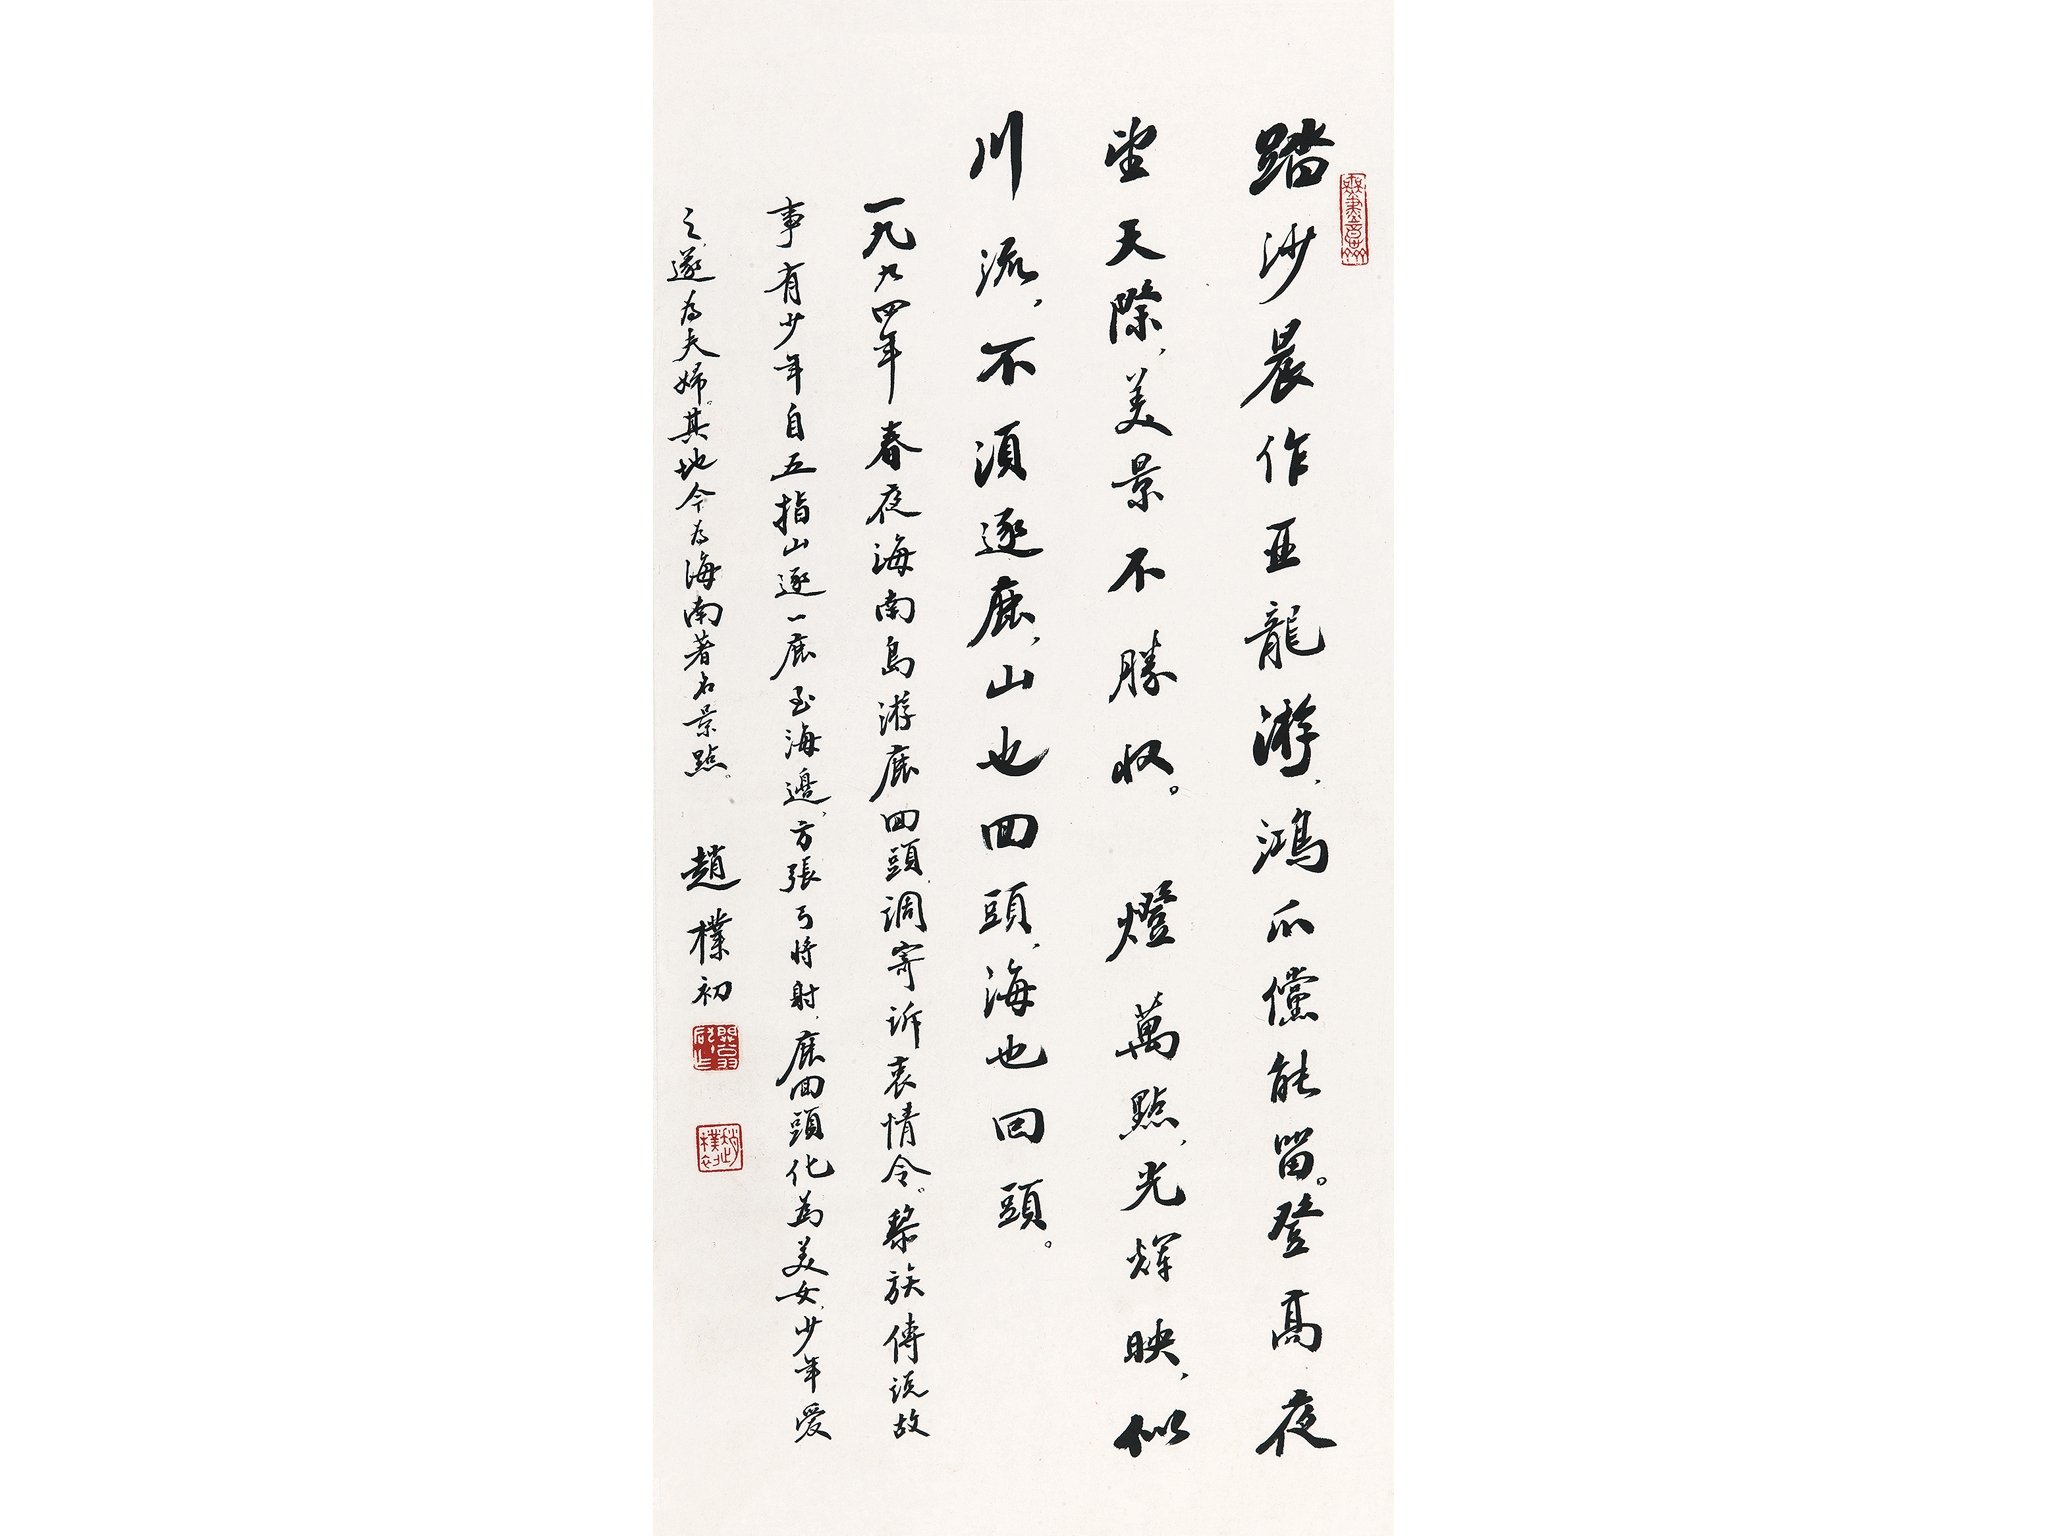 踏沙晨作亞龍游，鴻爪儻能留。登高夜
望天際，美景不勝收。燈萬點，光輝映，似
川流，不須逐鹿，山也回頭，海也回頭。
一九九四年春夜海南島游鹿回頭，調寄訴衷情令。黎族傳說故
事有少年自五指山逐一鹿至海邊，方張弓將射，鹿回頭化為美女，少年愛
之，遂為夫婦。其地今為海南著名景點。
趙樸初
趙樸初